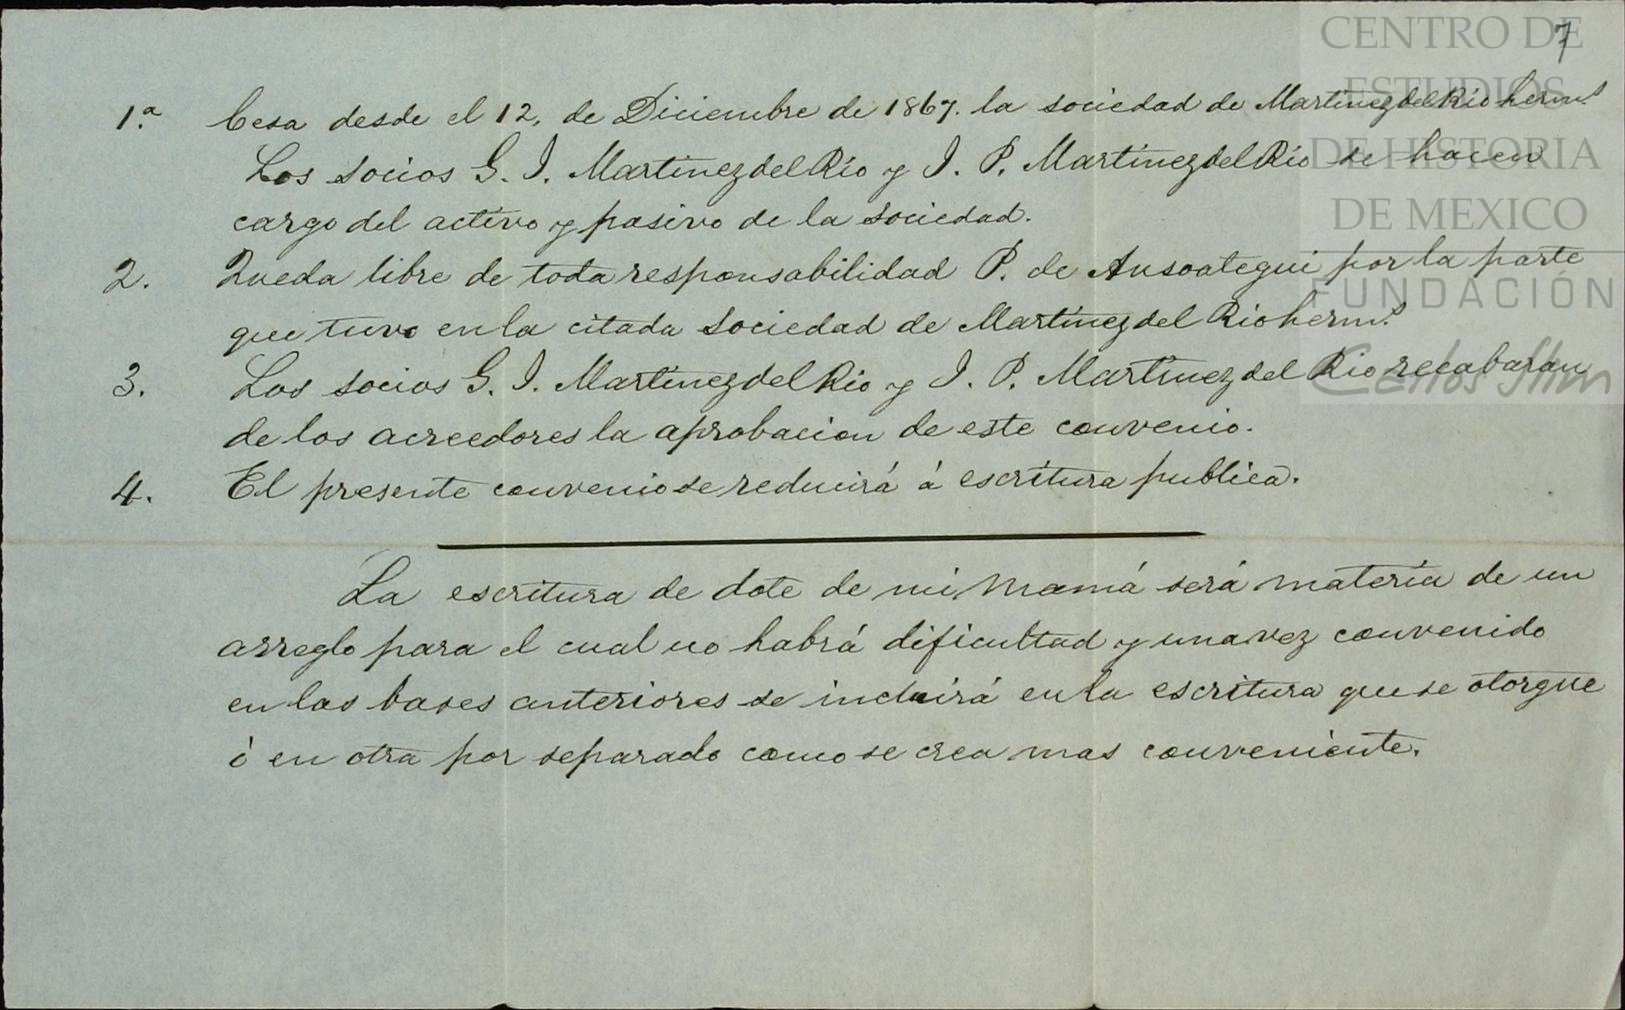 7
CENTRO DE
ESTUDIOS
DE HISTORIA
DE MEXICO
FUNDACIÓN
Carlos Slim
1.ª Cesa desde el 12, de Diciembre de 1867. la sociedad de Martinez del Rio herms.
Los socios G. I. Martinez del Rio y J. P. Martinez del Rio se hacen
cargo del activo y pasivo de la sociedad.
2. Queda libre de toda responsabilidad P. de Ansoategui por la parte
que tuvo en la citada sociedad de Martinez del Rio herms.
3. Los socios G. I. Martinez del Rio y J. P. Martinez del Rio recabaran
de los acreedores la aprobacion de este convenio.
4. El presente convenio se reducirá á escritura publica.
La escritura de dote de mi Mamá será materia de un
arreglo para el cual no habrá dificultad y una vez convenido
en las bases anteriores se incluirá en la escritura que se otorgue
ó en otra por separado como se crea mas conveniente.